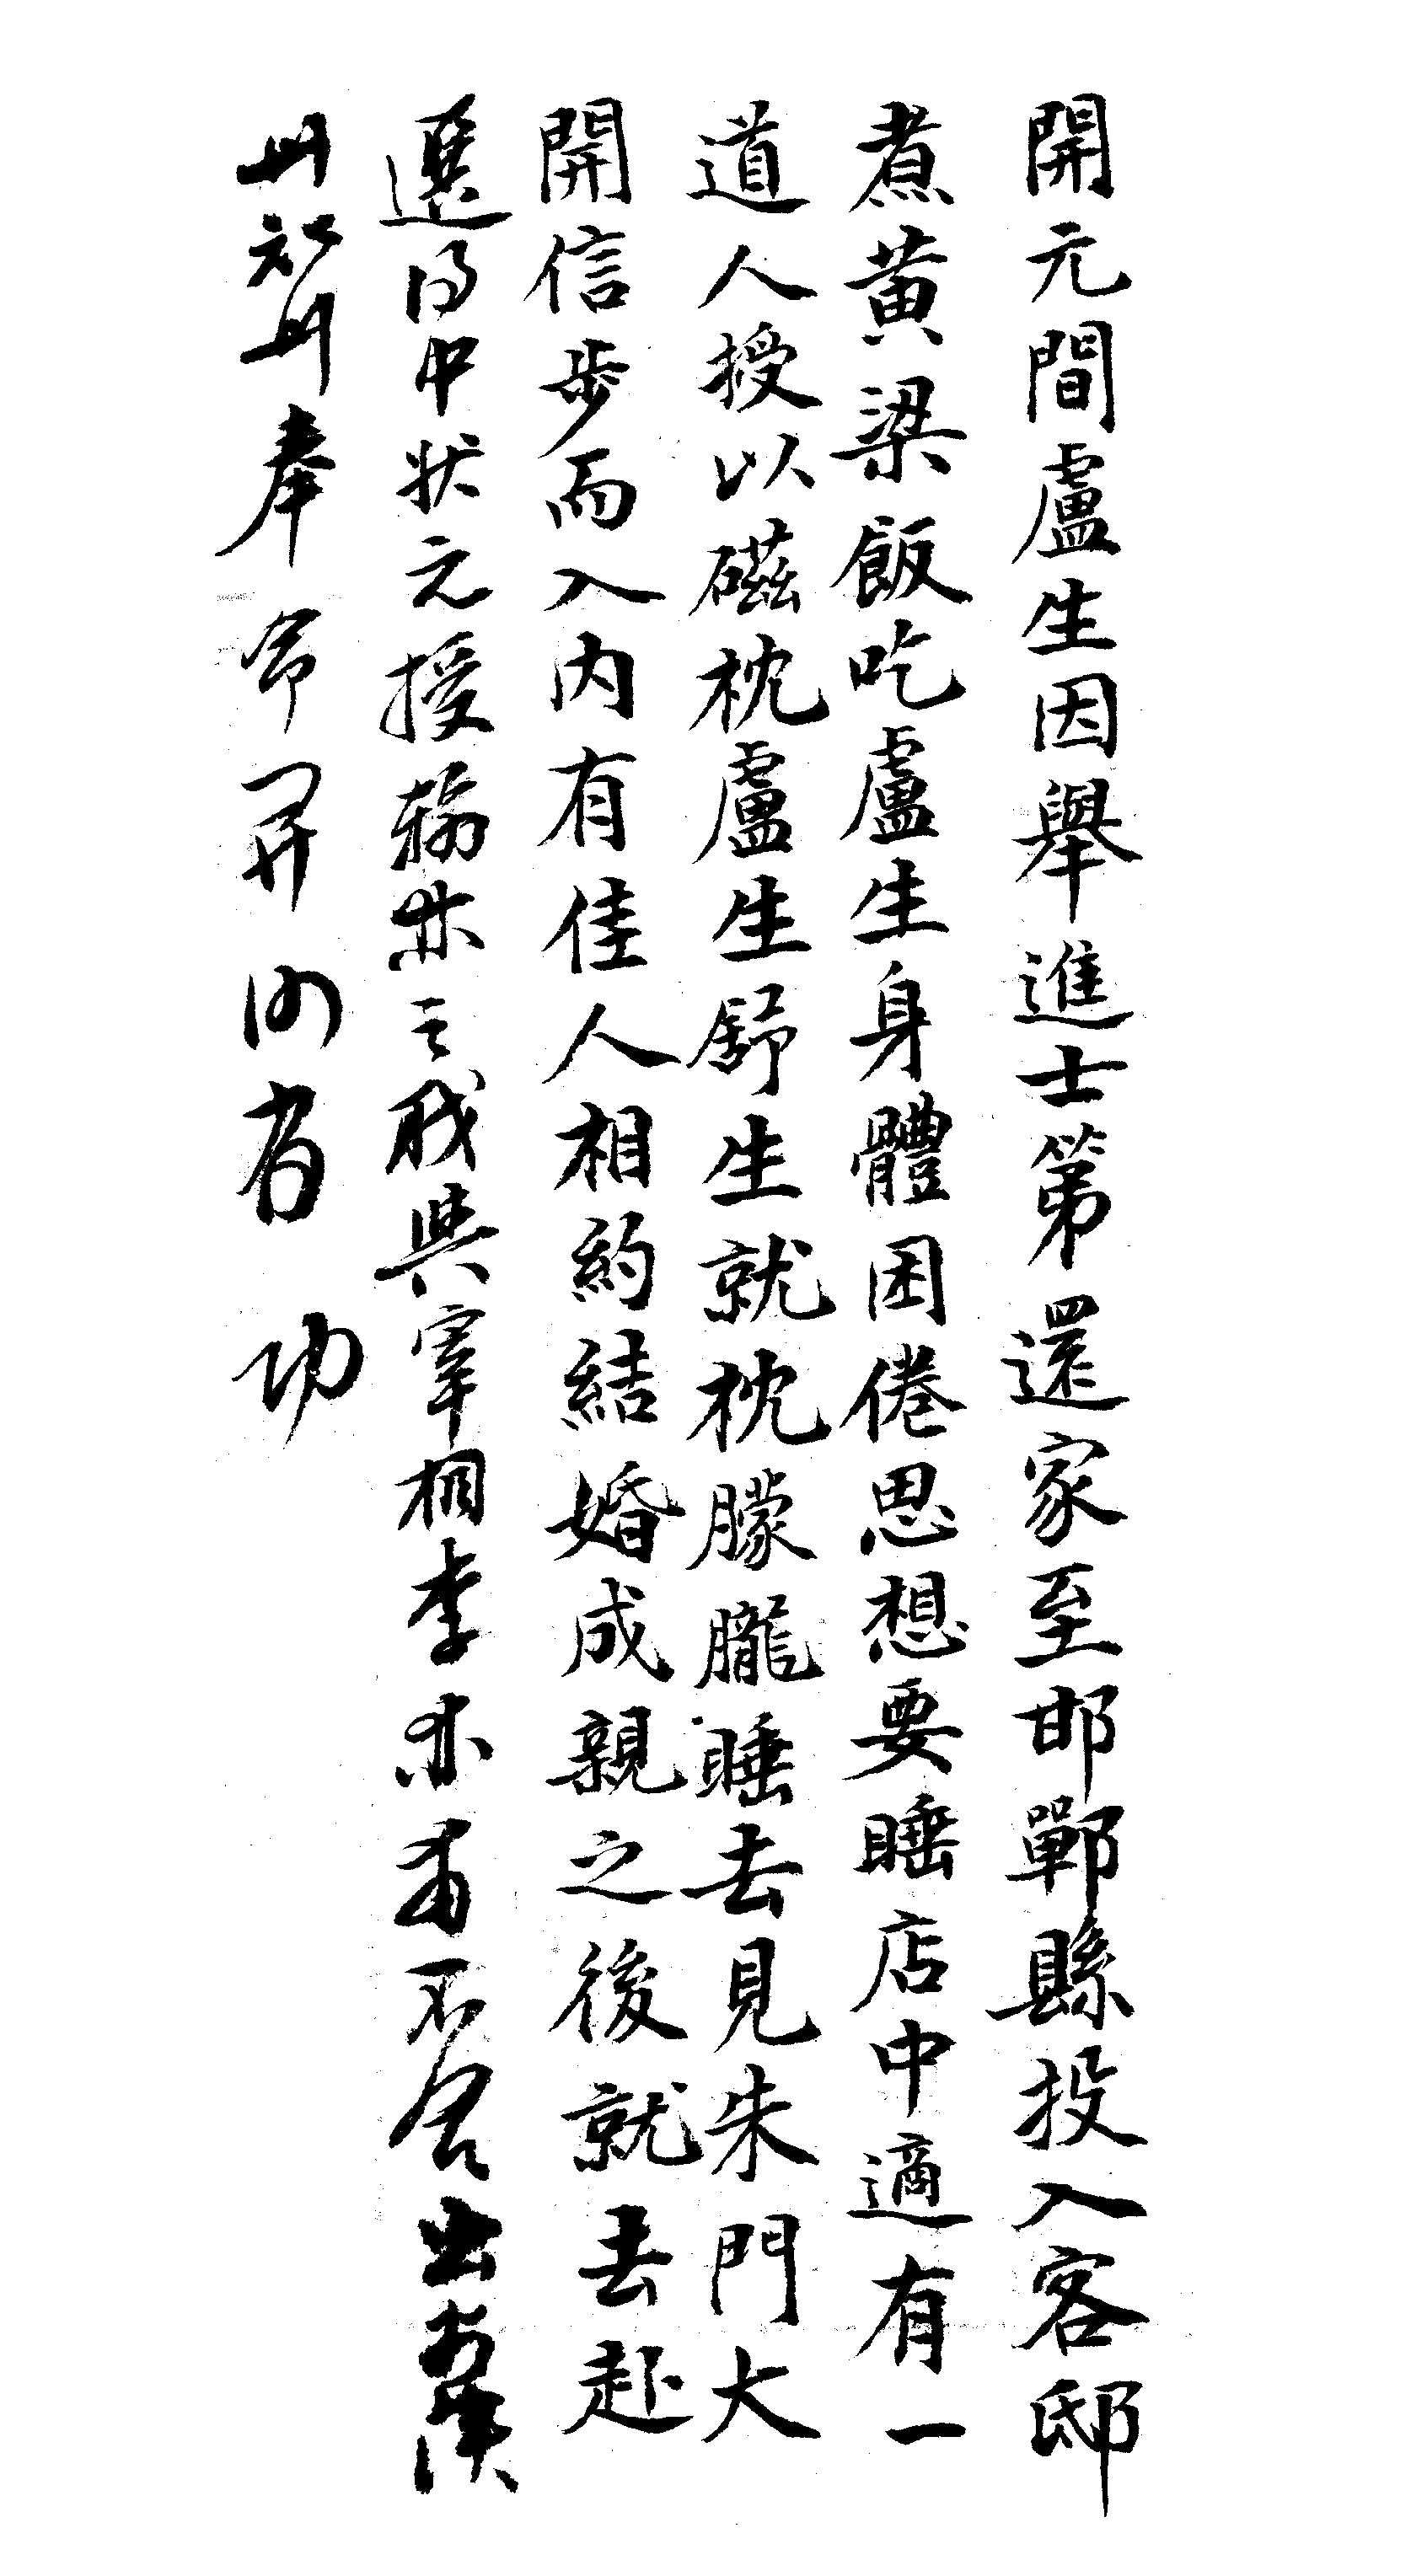 開元間盧生因舉進士第還家至邯鄲縣投入客邸
煮黄梁飯吃盧生身體困倦思想要睡店中適有一
道人授以磁枕盧生舒生就枕朦朧睡去見朱門大
開信步而入内有佳人相約結婚成親之後就去赴
選得中状元授翰林之職與宰相李林甫不合出為陝
州知州奉命開河有功